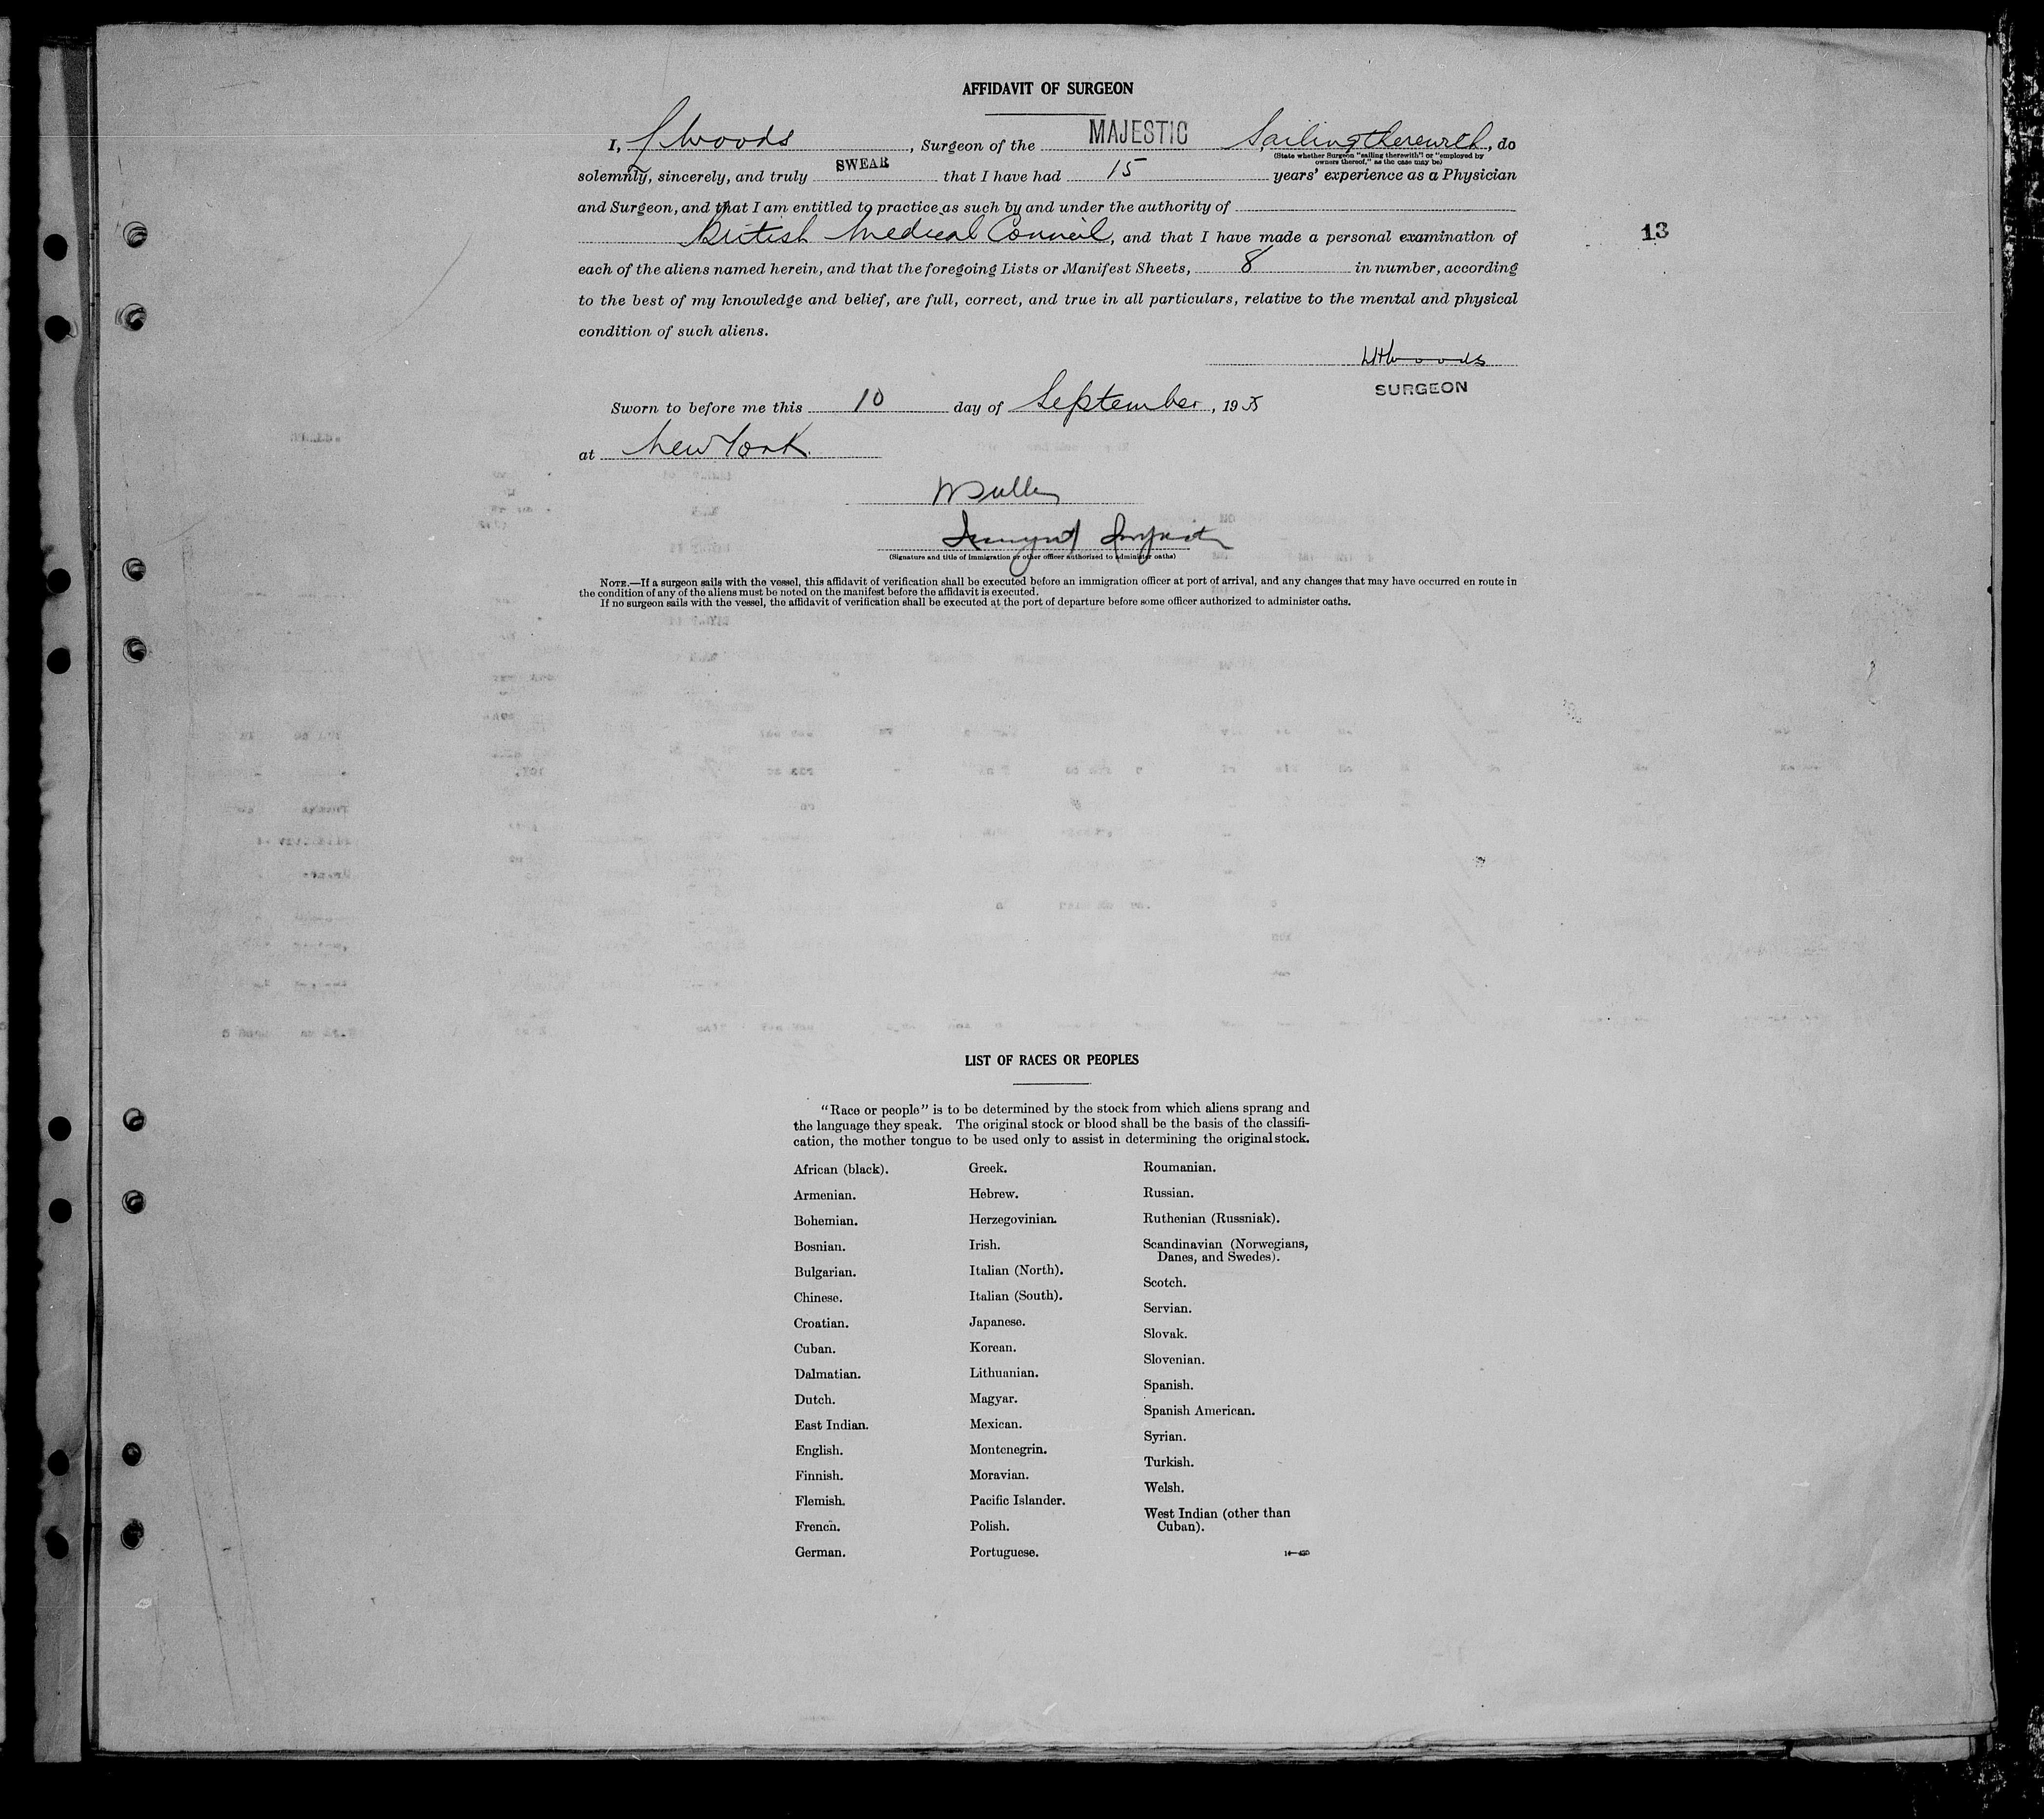 AFFIDAVIT OF SURGEON
I, Woods, Surgeon of the MAJESTIC Sailing therewith, do
(State whether Surgeon "sailing therewith" or "employed by
owners thereof," as the case may be)
solemnly, sincerely, and truly SWEAR that I have had 15 years' experience as a Physician
and Surgeon, and that I am entitled to practice as such by and under the authority of
British Medical Council, and that I have made a personal examination of
13
each of the aliens named herein, and that the foregoing Lists or Manifest Sheets, 8 in number, according
to the best of my knowledge and belief, are full, correct, and true in all particulars, relative to the mental and physical
condition of such aliens.
Woods
SURGEON
Sworn to before me this 10 day of September, 19
at New York.
(Signature and title of immigration or other officer authorized to administer oaths)
NOTE.—If a surgeon sails with the vessel, this affidavit of verification shall be executed before an immigration officer at port of arrival, and any changes that may have occurred en route in
the condition of any of the aliens must be noted on the manifest before the affidavit is executed.
If no surgeon sails with the vessel, the affidavit of verification shall be executed at the port of departure before some officer authorized to administer oaths.
LIST OF RACES OR PEOPLES
"Race or people" is to be determined by the stock from which aliens sprang and
the language they speak. The original stock or blood shall be the basis of the classifi-
cation, the mother tongue to be used only to assist in determining the original stock.
African (black).
Armenian.
Bohemian.
Bosnian.
Bulgarian.
Chinese.
Croatian.
Cuban.
Dalmatian.
Dutch.
East Indian.
English.
Finnish.
Flemish.
French.
German.
Greek.
Hebrew.
Herzegovinian.
Irish.
Italian (North).
Italian (South).
Japanese.
Korean.
Lithuanian.
Magyar.
Mexican.
Montenegrin.
Moravian.
Pacific Islander.
Polish.
Portuguese.
Roumanian.
Russian.
Ruthenian (Russniak).
Scandinavian (Norwegians,
Danes, and Swedes).
Scotch.
Servian.
Slovak.
Slovenian.
Spanish.
Spanish American.
Syrian.
Turkish.
Welsh.
West Indian (other than
Cuban).